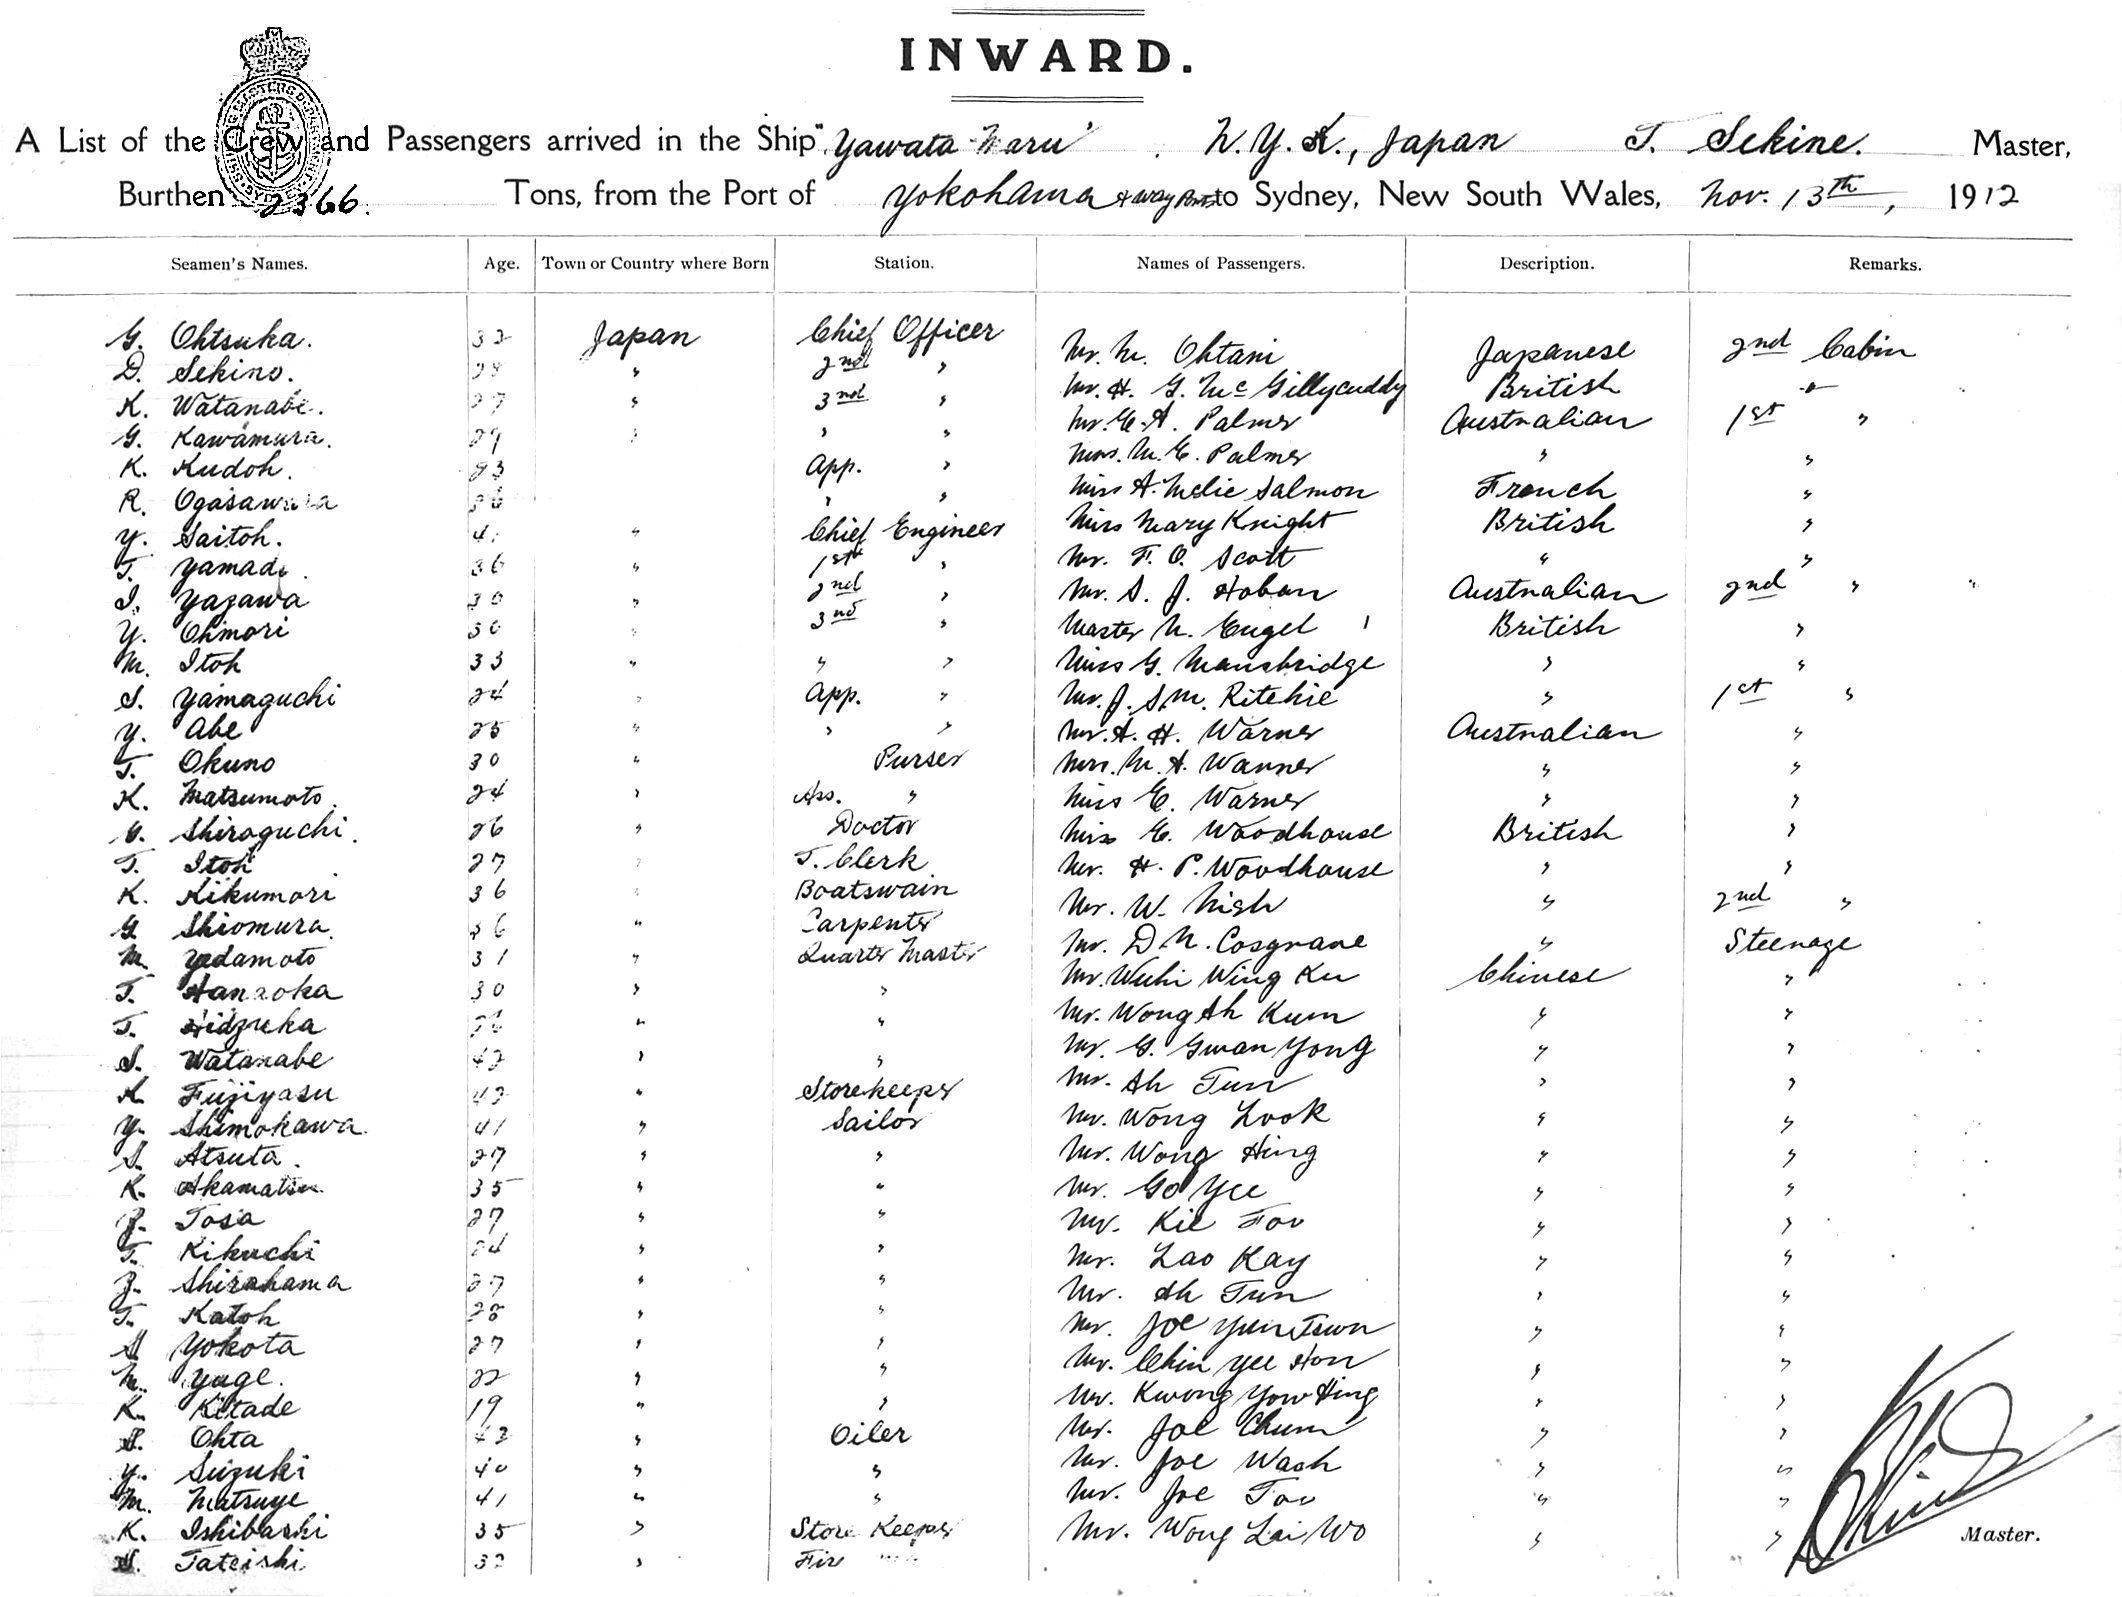 INWARD.
A List of the Crew and Passengers arrived in the Ship "Yawata Maru" N.Y.K., Japan T. Sekine. Master,
Burthen 2366. Tons, from the Port of Yokohama & way Ports to Sydney, New South Wales, Nov. 13th, 1912
Seamen's Names. Age. Town or Country where Born Station. Names of Passengers. Description. Remarks.
G. Ohtsuka. 32 Japan Chief Officer Mr. M. Ohtani Japanese 2nd Cabin
D. Sekino. 28 " 2nd " Mr. H. G. McGillycuddy British "
K. Watanabe. 27 " 3rd " Mr. E. A. Palmer Australian 1st "
G. Kawamura. 29 " " " Mrs. M. E. Palmer " "
K. Kudoh. 23 App. " Miss A. Melie Salmon French "
R. Ogasawara 26 " " Miss Mary Knight British "
Y. Saitoh. 41 " Chief Engineer Mr. F. O. Scott " "
T. Yamada. 36 " 1st " Mr. S. J. Hoban Australian 2nd " "
I. Yazawa 30 " 2nd " Master N. Engel 1 British "
Y. Ohmori 30 " 3rd " Miss G. Mansbridge " "
M. Itoh 33 " " " Mr. J. S. M. Ritchie " 1st "
S. Yamaguchi 24 " App. " Mr. A. H. Warner Australian "
Y. Abe 25 " " " Mrs. M. A. Warner " "
T. Okuno 30 " Purser Miss E. Warner " "
K. Matsumoto. 24 " Ass. " Miss E. Woodhouse British "
G. Shiroguchi. 26 " Doctor Mr. H. P. Woodhouse " "
T. Itoh 27 " T. Clerk Mr. W. Nish " 2nd "
K. Kikumori 36 " Boatswain Mr. D. N. Cosgrave " Steerage
G. Shiomura. 36 " Carpenter Mr. Wuhi Wing Ku Chinese "
M. Yadamoto 31 " Quarter Master Mr. Wong Ah Kum " "
T. Hanaoka 30 " " Mr. G. Gwan Yong " "
T. Hidzuka 26 " " Mr. Ah Tun " "
S. Watanabe 42 " " Mr. Wong Look " "
K. Fujiyasu 42 " Storekeeper Mr. Wong Hing " "
Y. Shimokawa. 41 " Sailor Mr. Go Yee " "
S. Atsuta. 27 " " Mr. Kie Foo " "
K. Akamatsu. 35 " " Mr. Lao Kay " "
Z. Tosa 27 " " Mr. Ah Tun " "
T. Kikuchi 24 " " Mr. Joe Yun Tswn " "
Z. Shirahama 27 " " Mr. Chin Yee Hon " "
T. Katoh 28 " " Mr. Kwong Yow Hing " "
S. Yokota 27 " " Mr. Joe Chum " "
M. Yuge. 22 " " Mr. Joe Wash " "
K. Kitade 19 " " Mr. Joe Foo " "
S. Ohta 42 " Oiler Mr. Wong Lai Wo " "
Y. Suzuki 40 " "
M. Matsuye 41 " "
K. Ishibashi 35 " Store Keeper
S. Tateishi 32 " Fir
Master.